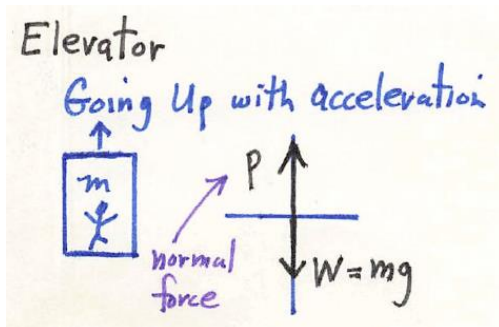 Elevator
Going Up with acceleration
m
P
normal
force
W = mg